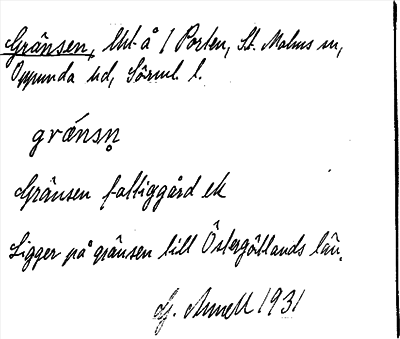 Gränsen, lht å 1 Porten, St. Malms sn,
Oppunda hd, Sörml. l.
grǽnsn̥
Gränsen fattiggård ek
Ligger på gränsen till Östergötlands län.
G. Annell 1931